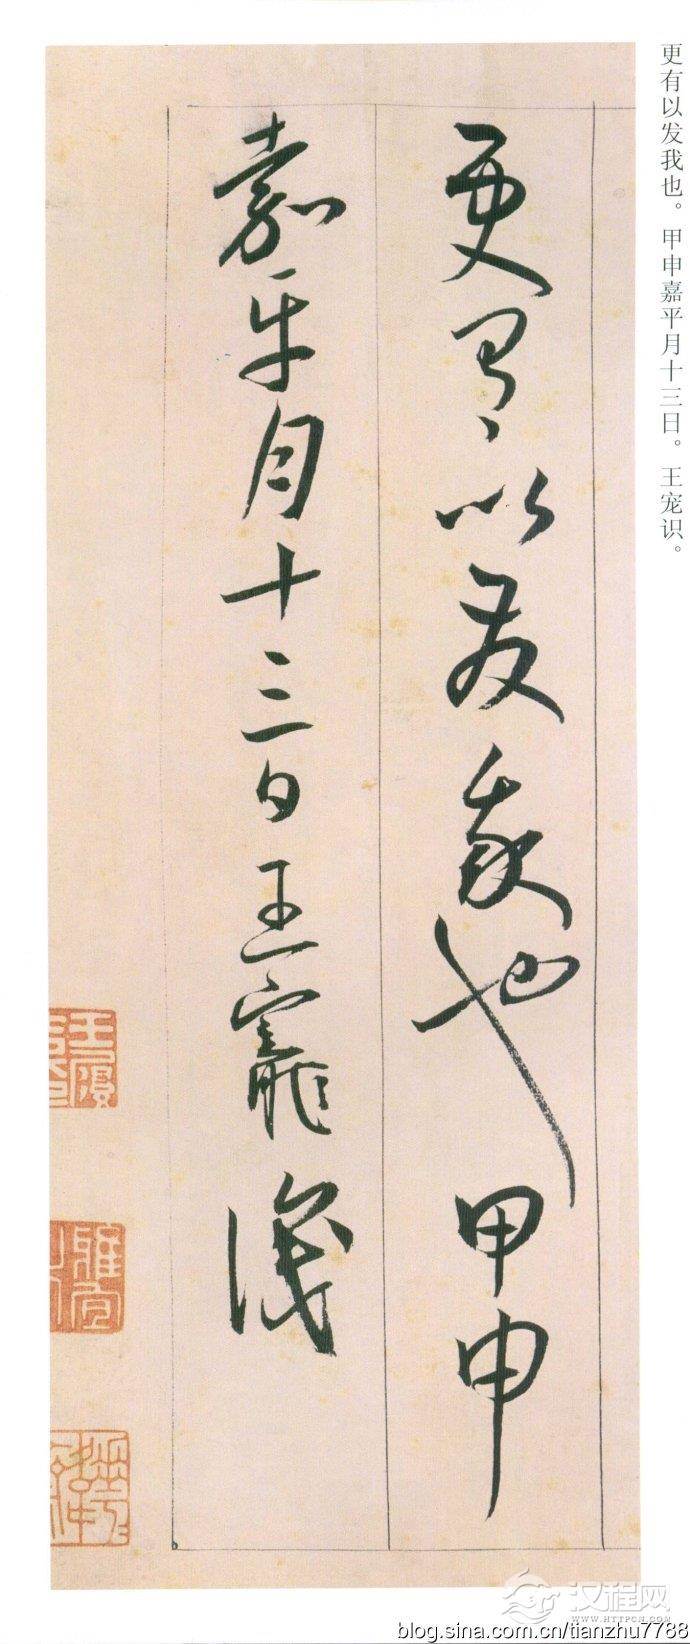 更有以发我也。甲申嘉平月十三日。王宠识。
更有以發我也甲申
嘉平月十三日王寵識
汉程网
WWW.HTTPCN.COM
blog.sina.com.cn/tianzhu7788